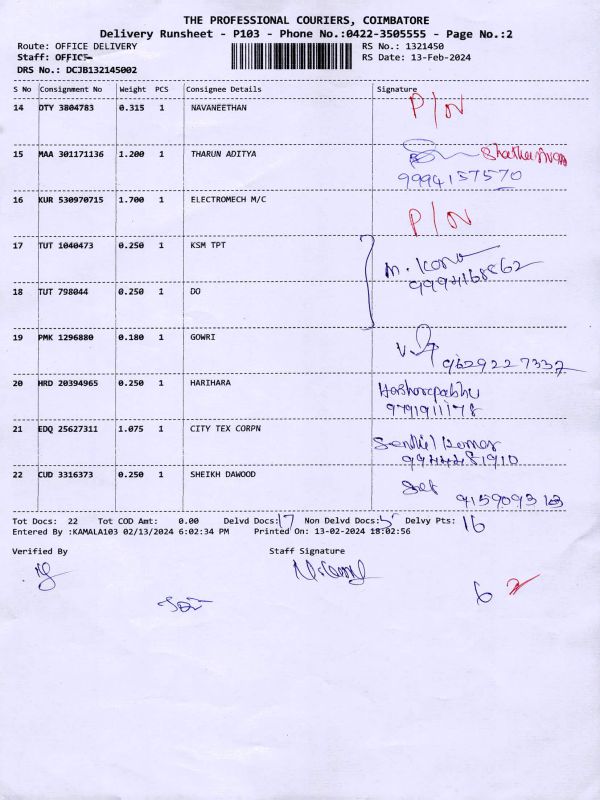 THE PROFESSIONAL COURIERS, COIMBATORE
Delivery Runsheet - P103 - Phone No.:0422-3505555 - Page No.:2
Route: OFFICE DELIVERY RS No.: 1321450
Staff: OFFICE RS Date: 13-Feb-2024
DRS No.: DCJB132145002
S No Consignment No Weight PCS Consignee Details Signature
14 DTY 3804783 0.315 1 NAVANEETHAN P/N
15 MAA 301171136 1.200 1 THARUN ADITYA
9994157570
16 KUR 530970715 1.700 1 ELECTROMECH M/C P/N
17 TUT 1040473 0.250 1 KSM TPT
18 TUT 798044 0.250 1 DO
19 PMK 1296880 0.180 1 GOWRI
9629227337
20 HRD 20394965 0.250 1 HARIHARA
9791911178
21 EDQ 25627311 1.075 1 CITY TEX CORPN Senthil Kumar
9944481910
22 CUD 3316373 0.250 1 SHEIKH DAWOOD
Tot Docs: 22 Tot COD Amt: 0.00 Delvd Docs: 17 Non Delvd Docs: 5 Delvy Pts: 16
Entered By :KAMALA103 02/13/2024 6:02:34 PM Printed On: 13-02-2024 18:02:56
Verified By Staff Signature